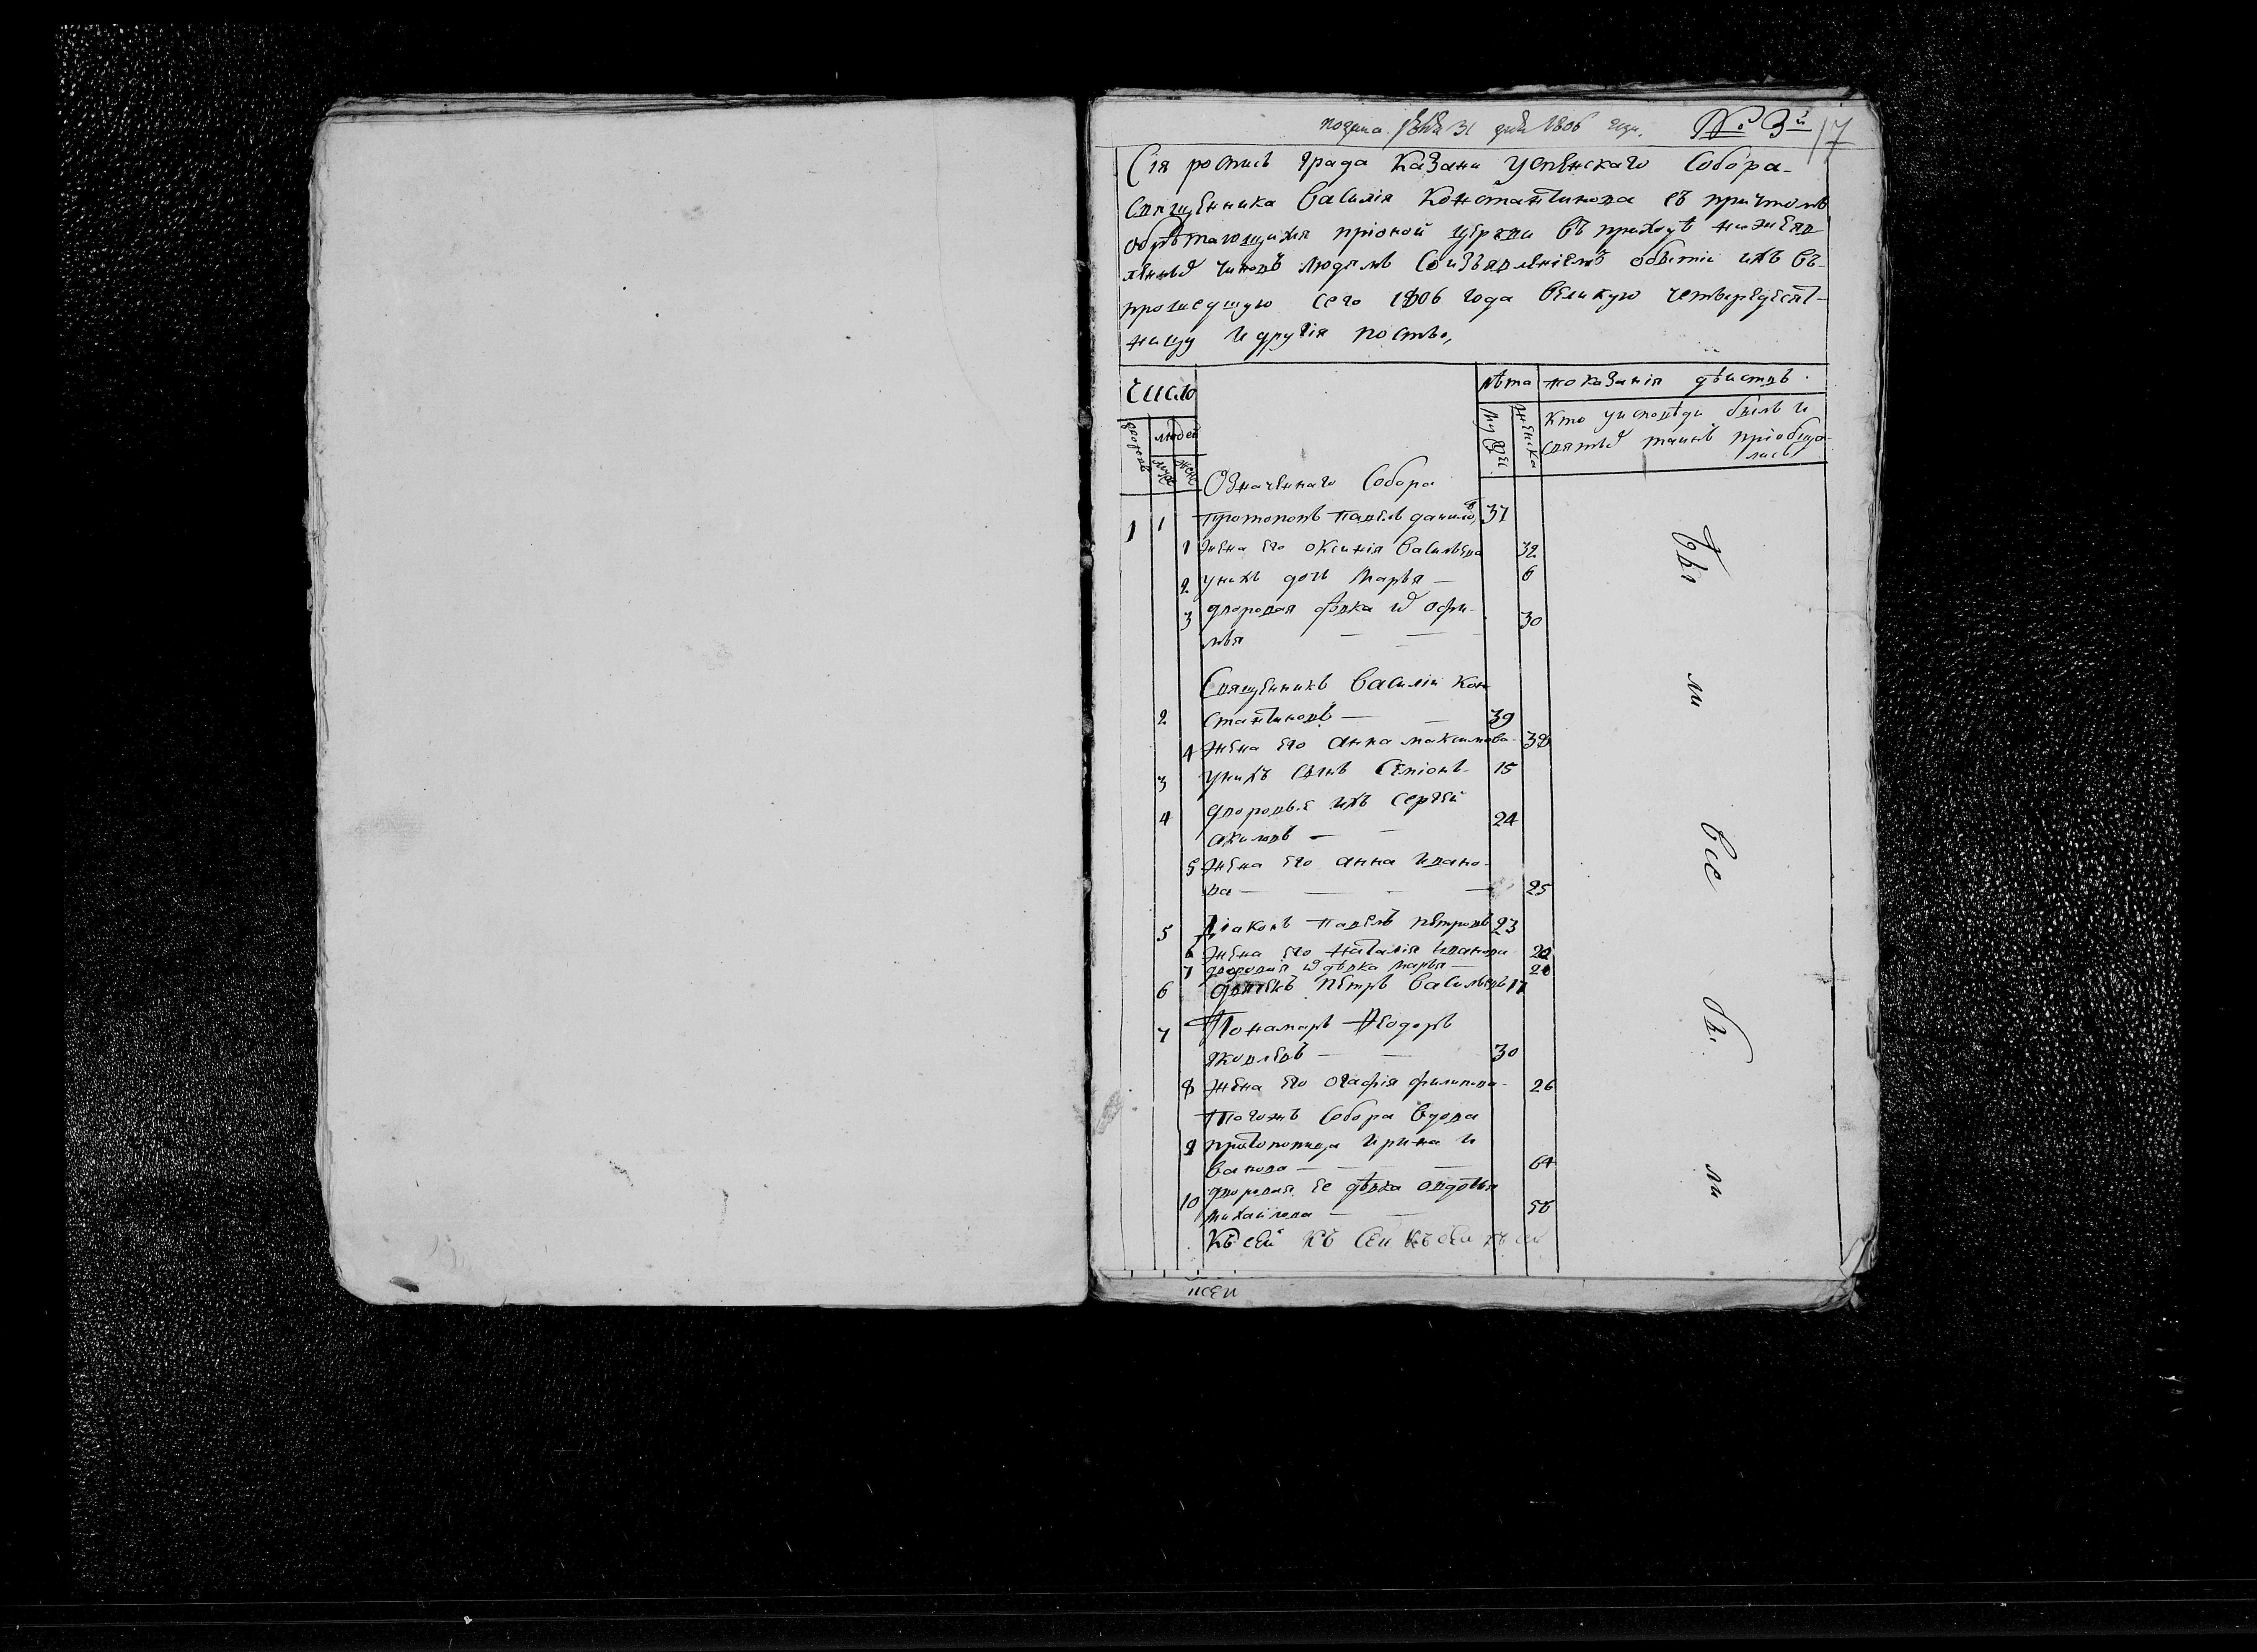 подана 31 дня 1806 года № 3й 17
Сія роспись града Казани Успенскаго Собора
Священника Василія Константинова съ причтомъ
обрѣтающихся при оной церкви въ приходѣ нижеяв
ленныхъ чиновъ людямъ со изъявленіемъ о бытіи ихъ въ
прошедшую сего 1806 года великую четыредесят-
ницу и другія посты,
число
лѣта
показанія дѣиствъ
дворовъ
людей
муж
жен
муж
женска
кто у исповѣди былъ и
святыхъ таинъ пріобща
лись
Означеннаго Собора
1 1 Протопопъ Павелъ Данило 37
1 жена его Оксинія Васильева 32
2 у нихъ дочь Марья — 6
3 дворовая дѣвка их Офи-
мья — — 30
Священникъ Василіи Кон
2 стантиновъ — — 39
4 жена его Анна Максимова 38
3 у нихъ сынъ Семіонъ 15
4 дворовые ихъ Сергей
Акиловъ — — 24
5 жена его Анна Ивано-
ва — — — — 25
5 Діаконъ Павелъ Петровъ 23
6 жена его Наталія Иванова 20
7 дворовая их дѣвка Марья — 20
6 Петръ Васильевъ 17
7 Пономарь Феодоръ
Яковлевъ — — 30
8 жена его Огафія Филипова 26
Тогожъ Собора вдова
9 протопопица Ирина И
ванова — — — 64
10 дворовая ее дѣвка Овдотья
Михаилова — — 56
Къ сей къ сеи къ сеи къ сеи
Бы
ли
все
бы
ли